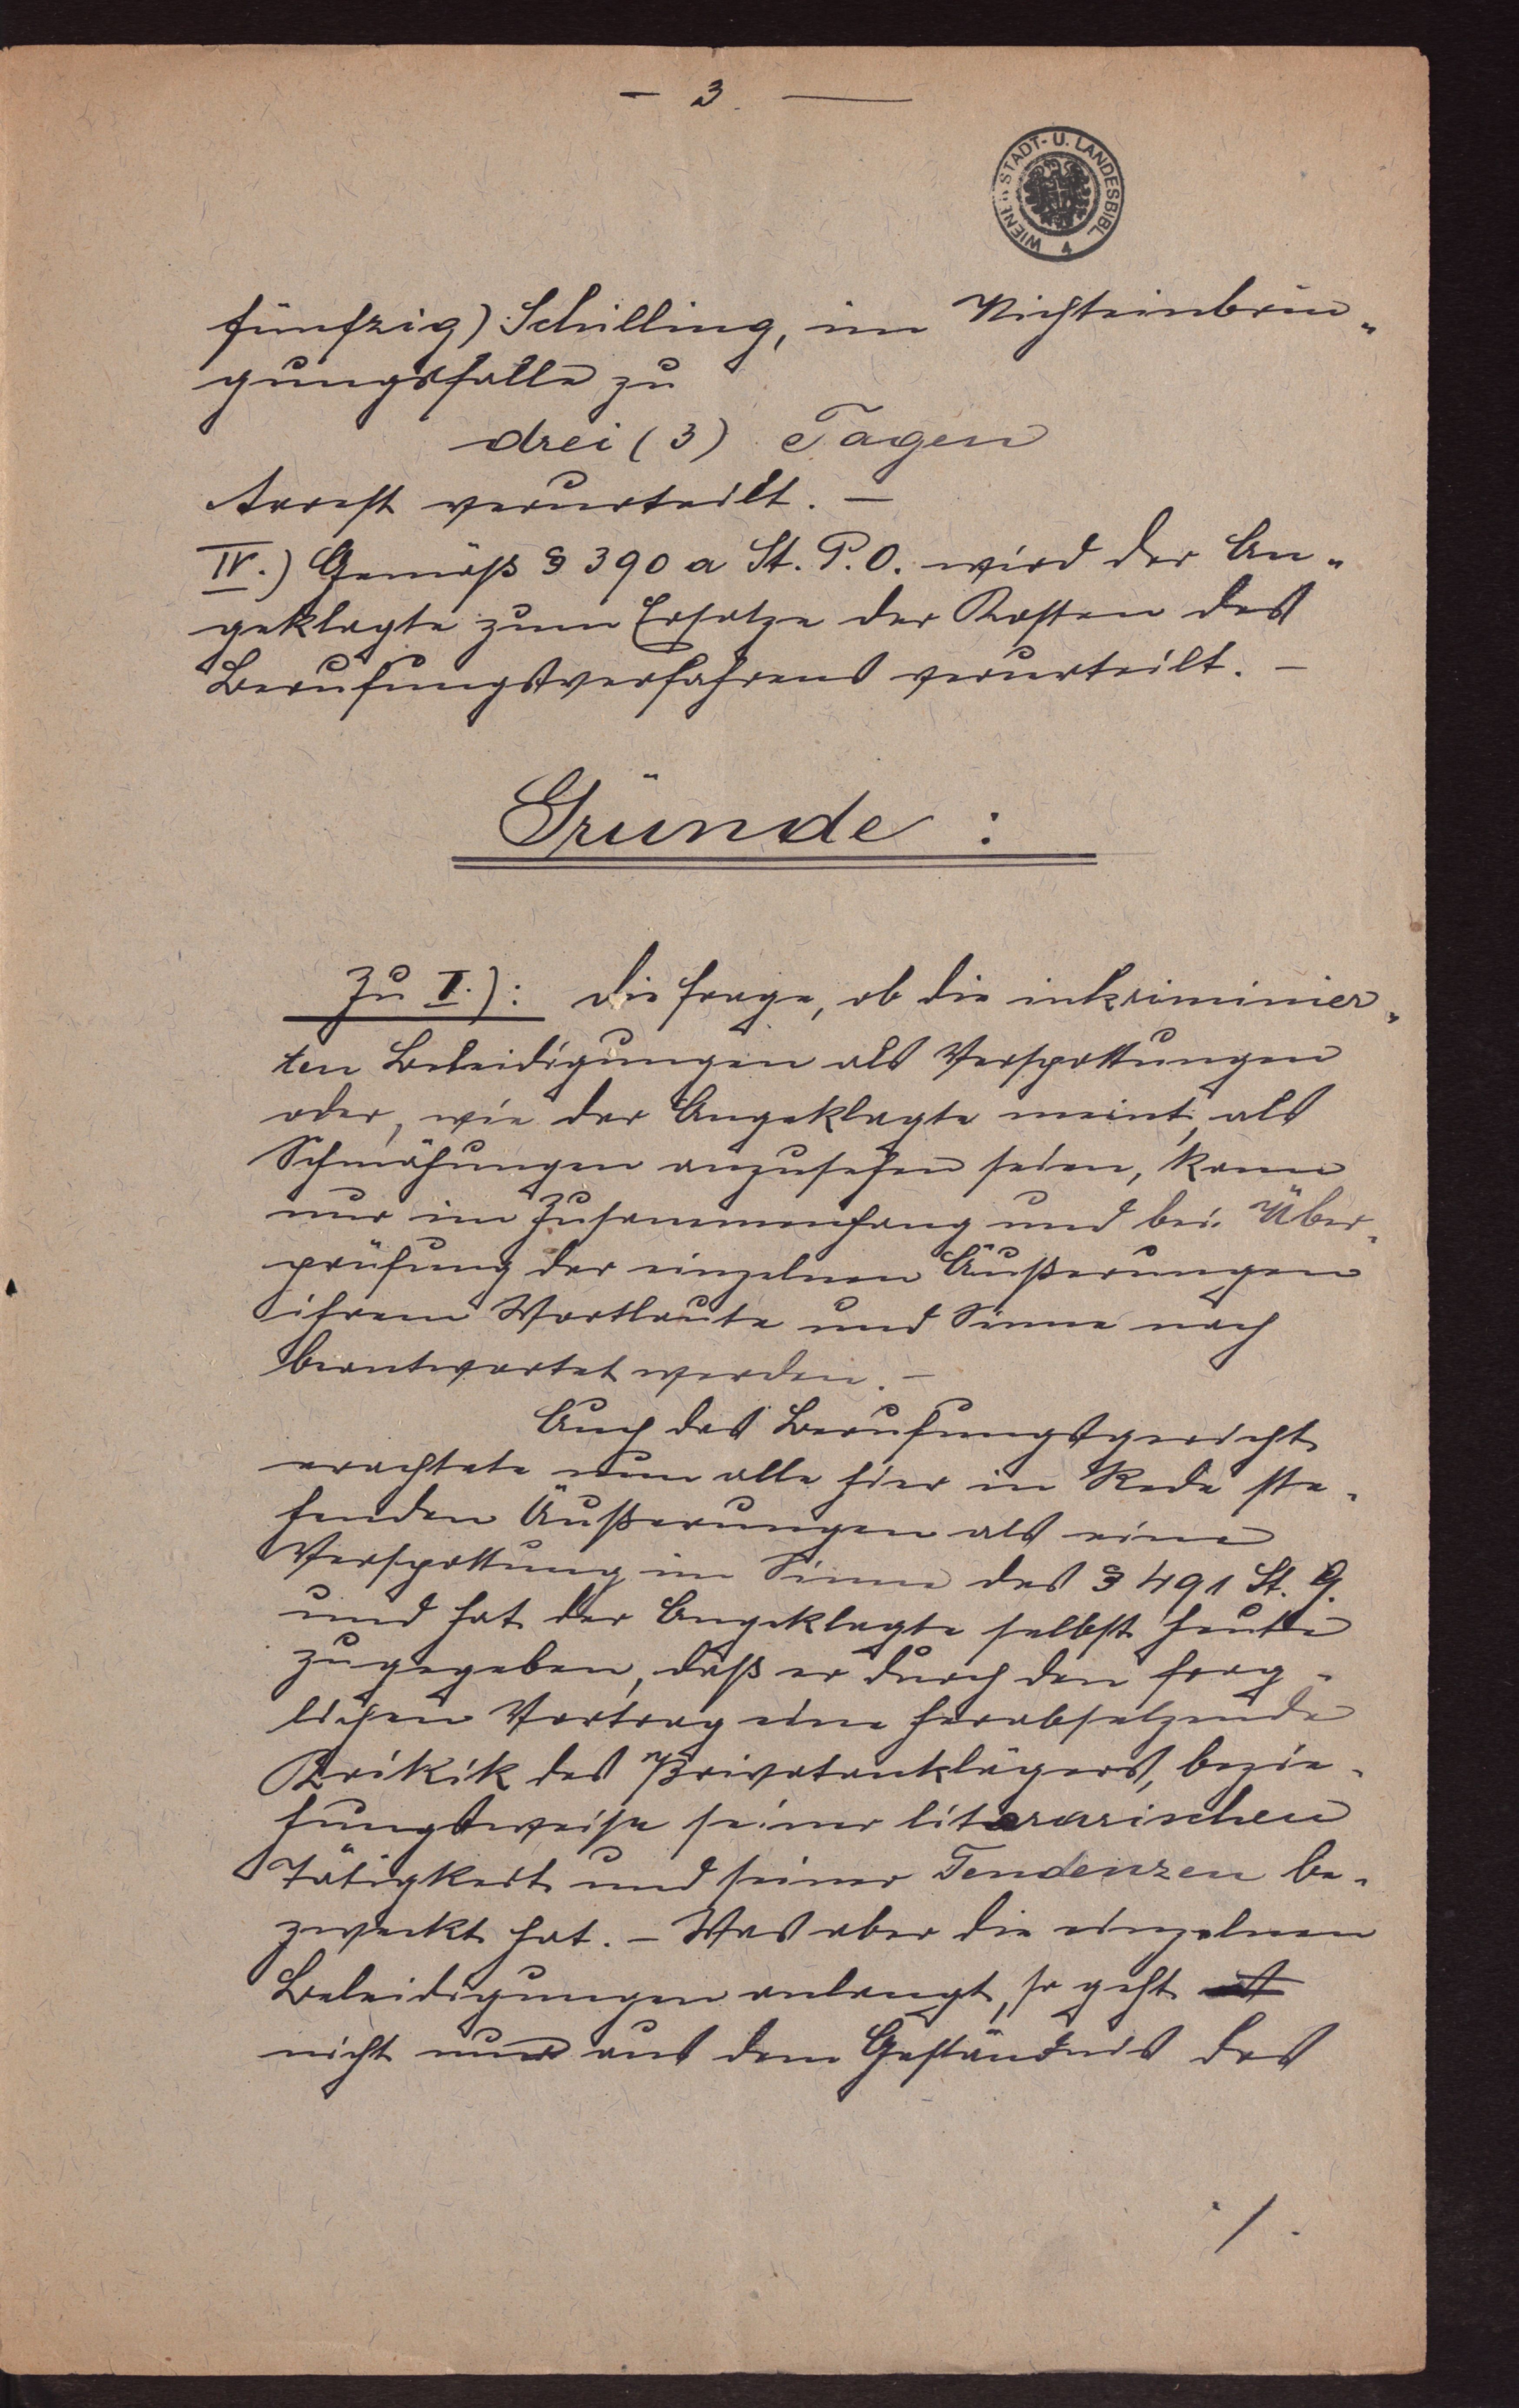 - 3. -
WIENER STADT- U. LANDESBIBL.
fünfzig) Schilling, im Nichteinbrin„
gungsfalle zu
drei (3) Tagen
Arrest verurteilt. -
IV.) Gemäß § 390 a St. P. O. wird der An„
geklagte zum Ersatze der Kosten des
Berufungsverfahrens verurteilt. -
Gründe :
Zu I.): Die Frage, ob die inkriminier„
ten Beleidigungen als Verspottungen
oder, wie der Angeklagte meint, als
Schmähungen anzusehen seien, kann
nur im Zusammenhang und bei Über„
prüfung der einzelnen Äußerungen
ihrem Wortlaute und Sinne nach
beantwortet werden. -
Auch das Berufungsgericht
erachtete nun alle hier in Rede ste„
henden Äußerungen als eine
Verspottung im Sinne des § 491 St. G.
und hat der Angeklagte selbst heute
zugegeben, daß er durch den frag„
lichen Vortrag eine herabsetzende
Kritik des Privatanklägers, bezie„
hungsweise seiner literarischen
Tätigkeit und seiner Tendenzen be„
zweckt hat. - Was aber die einzelnen
Beleidigungen anlangt, so geht
nicht nur aus dem Geständnis des
./.